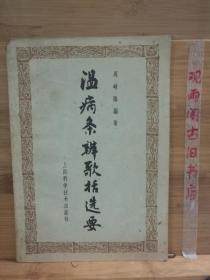 温病条辨歌括选要
上海科学技术出版社
观雨阁古旧书店